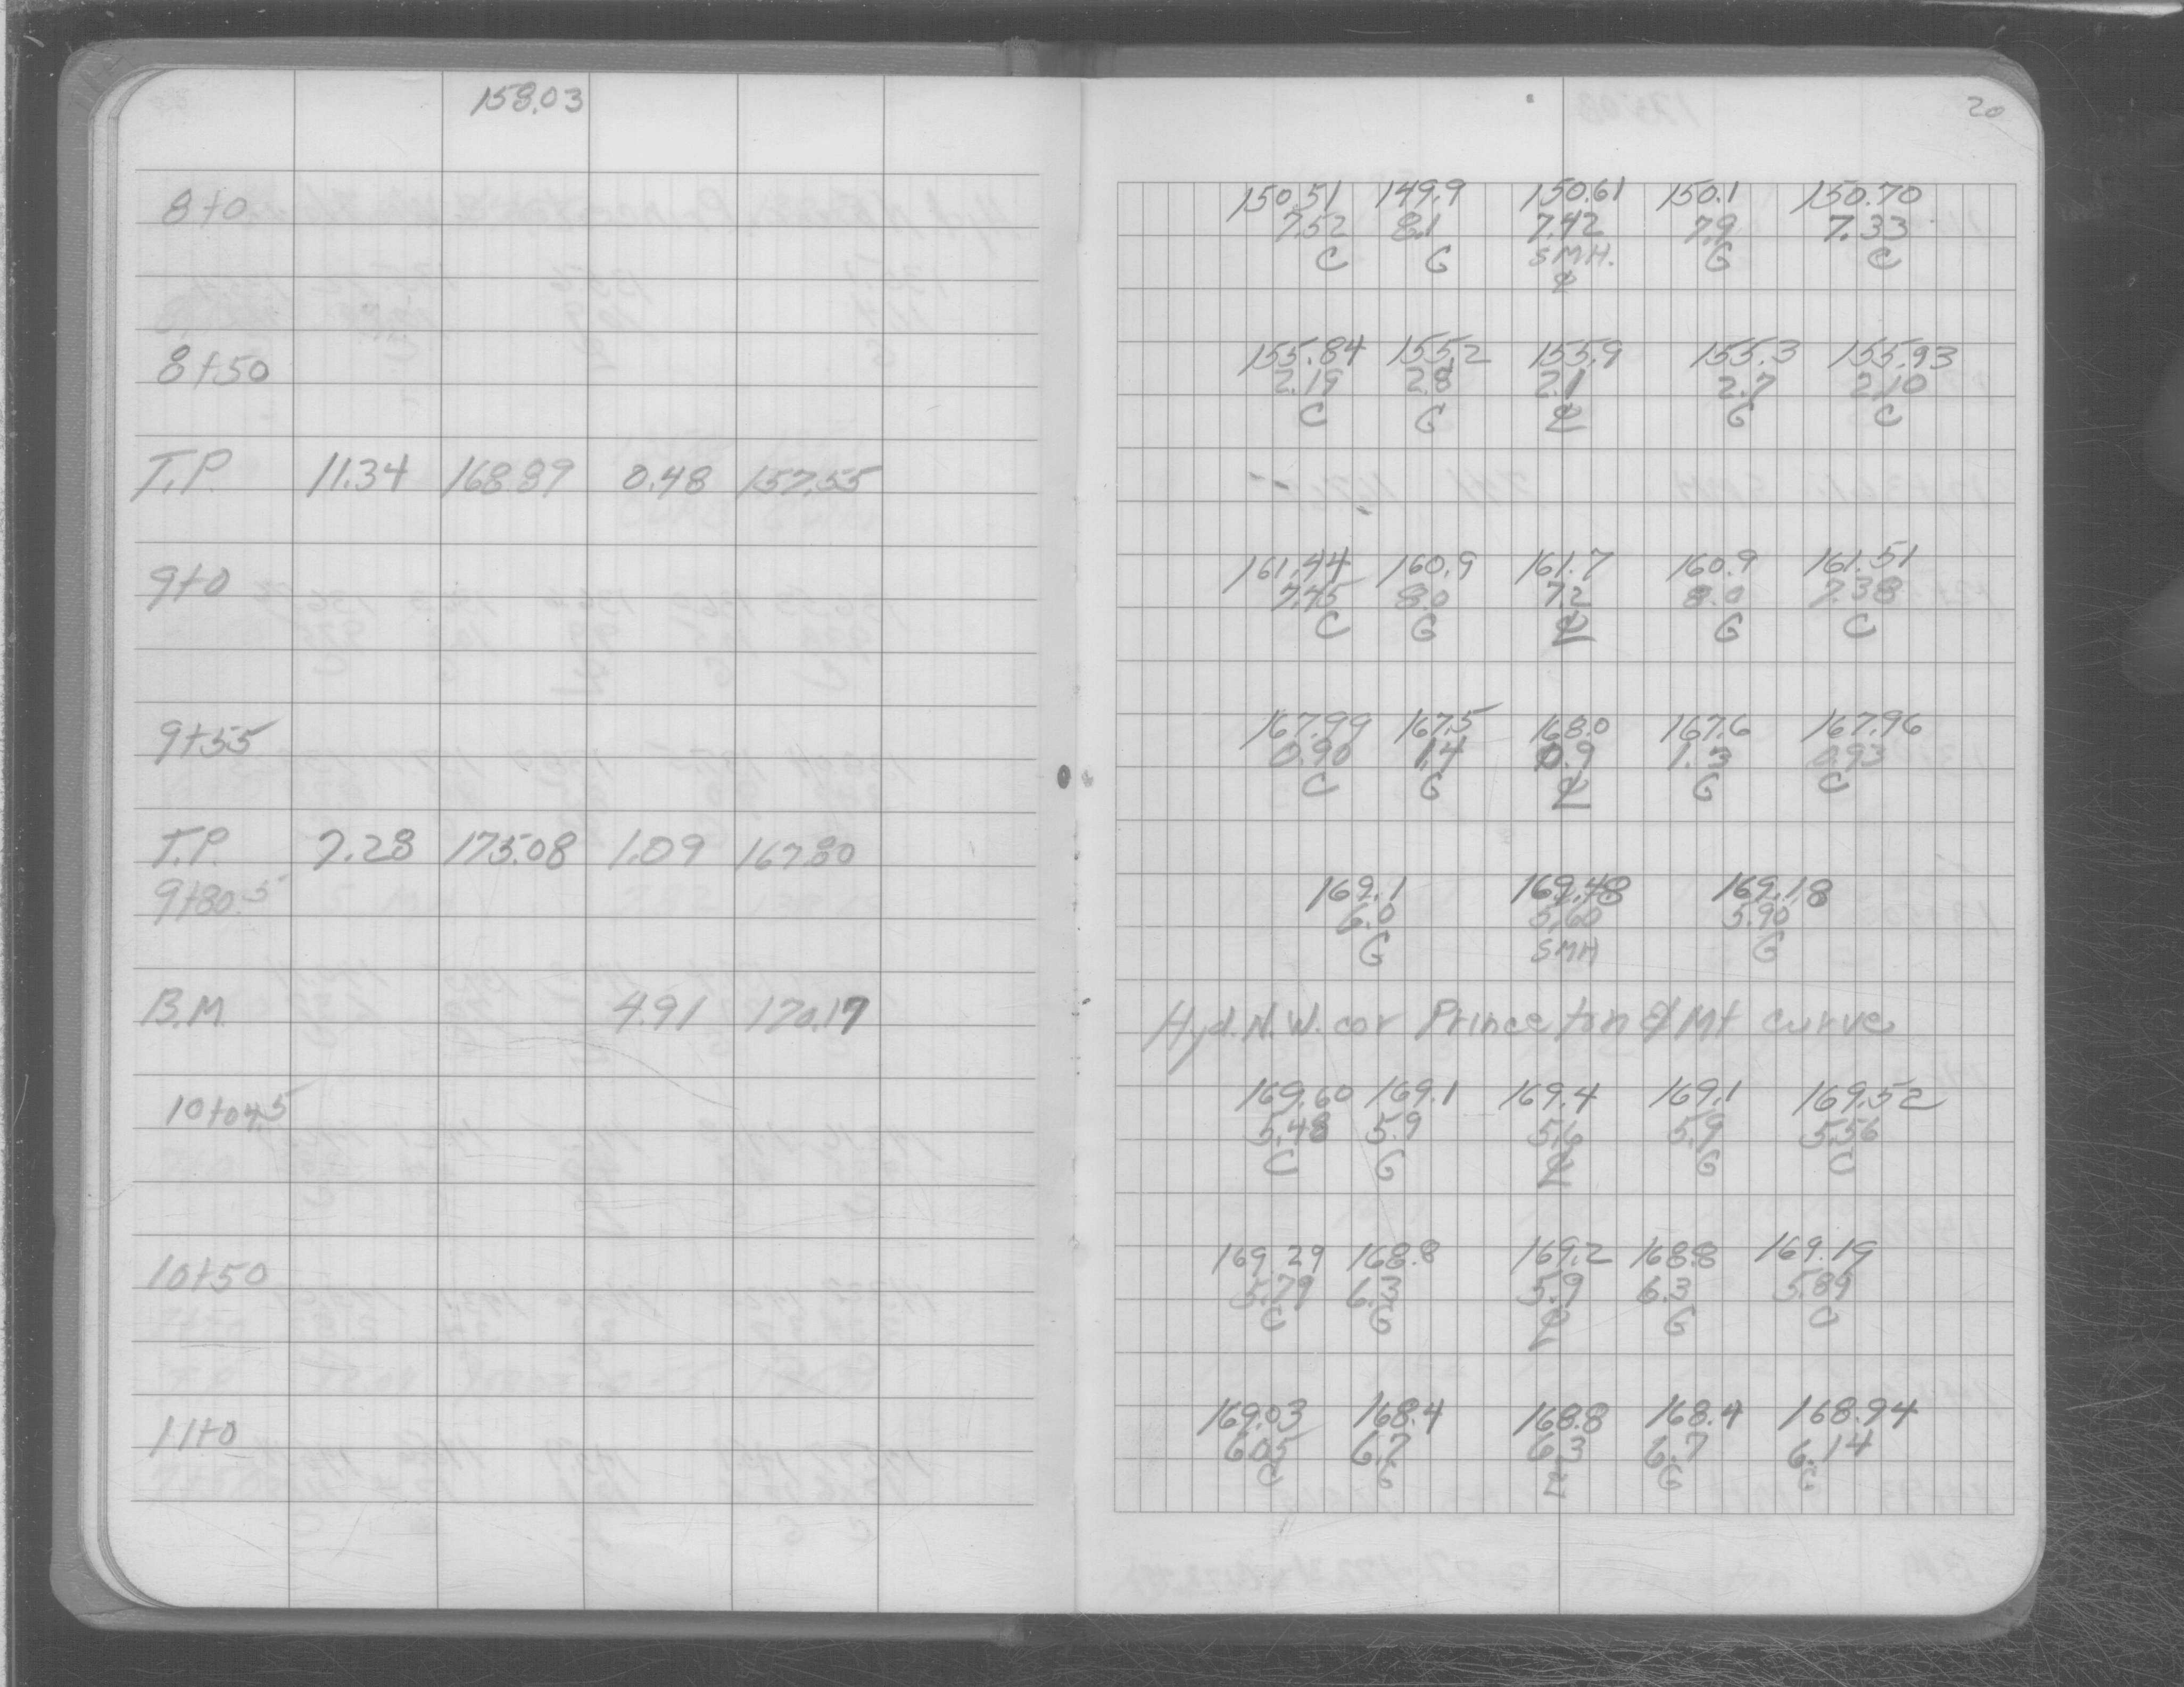 158.03
20
8+0
150.51 149.9 150.61 150.1 150.70
7.52 8.1 7.42 7.9 7.33
C G SMH. G C
℄
8+50
155.84 155.2 155.9 155.3 155.93
2.19 2.8 2.1 2.7 2.10
C G ℄ G C
T.P. 11.34 168.89 0.48 157.55
9+0
161.44 160.9 161.7 160.9 161.51
7.45 8.0 7.2 8.0 7.38
C G ℄ G C
9+55
167.99 167.5 168.0 167.6 167.96
0.90 1.4 0.9 1.3 0.93
C G ℄ G C
T.P. 7.28 175.08 1.09 167.80
9+80.5
169.1 169.48 169.18
6.0 5.60 5.90
G SMH G
B.M. 4.91 170.17 Hyd. N.W. cor Princeton & Mt curve
10+04.5
169.60 169.1 169.4 169.1 169.52
5.48 5.9 5.6 5.9 5.56
C G ℄ G C
10+50
169.29 168.8 169.2 168.8 169.19
5.79 6.3 5.9 6.3 5.89
C G ℄ G C
11+0
169.03 168.4 168.8 168.4 168.94
6.05 6.7 6.3 6.7 6.14
C G ℄ G C